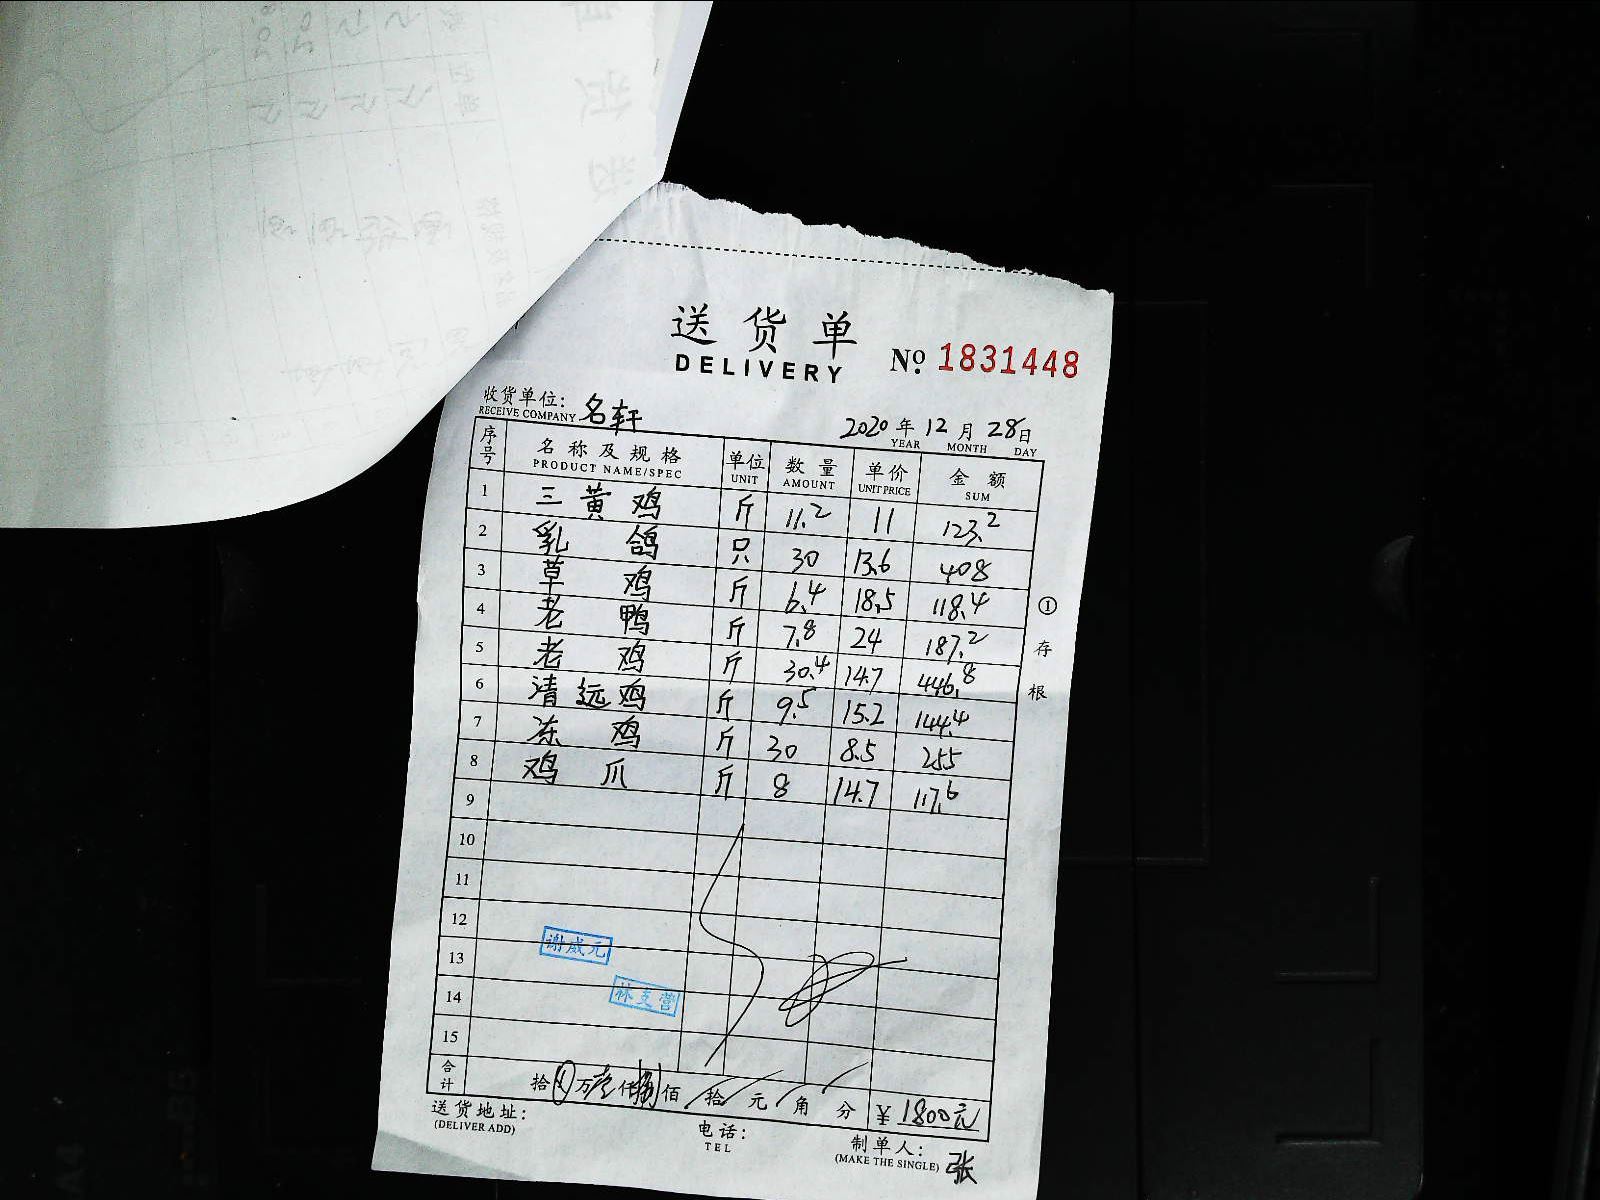 送货单
DELIVERY
№ 1831448
收货单位: 名轩
RECEIVE COMPANY
2020 年 12 月 28 日
YEAR MONTH DAY
序号 名称及规格 单位 数量 单价 金额
PRODUCT NAME/SPEC UNIT AMOUNT UNIT PRICE SUM
1 三黄鸡 斤 11.2 11 123.2
2 乳鸽 只 30 13.6 408
3 草鸡 斤 6.4 18.5 118.4
4 老鸭 斤 7.8 24 187.2
5 老鸡 斤 30.4 14.7 446.8
6 清远鸡 斤 9.5 15.2 144.4
7 冻鸡 斤 30 8.5 255
8 鸡爪 斤 8 14.7 117.6
9
10
11
12
13
14
15
谢威元
林支营
① 存根
合计 拾 万壹仟捌佰 拾 元 角 分 ¥ 1800元
送货地址:
(DELIVER ADD)
电话:
TEL
制单人: 张
(MAKE THE SINGLE)